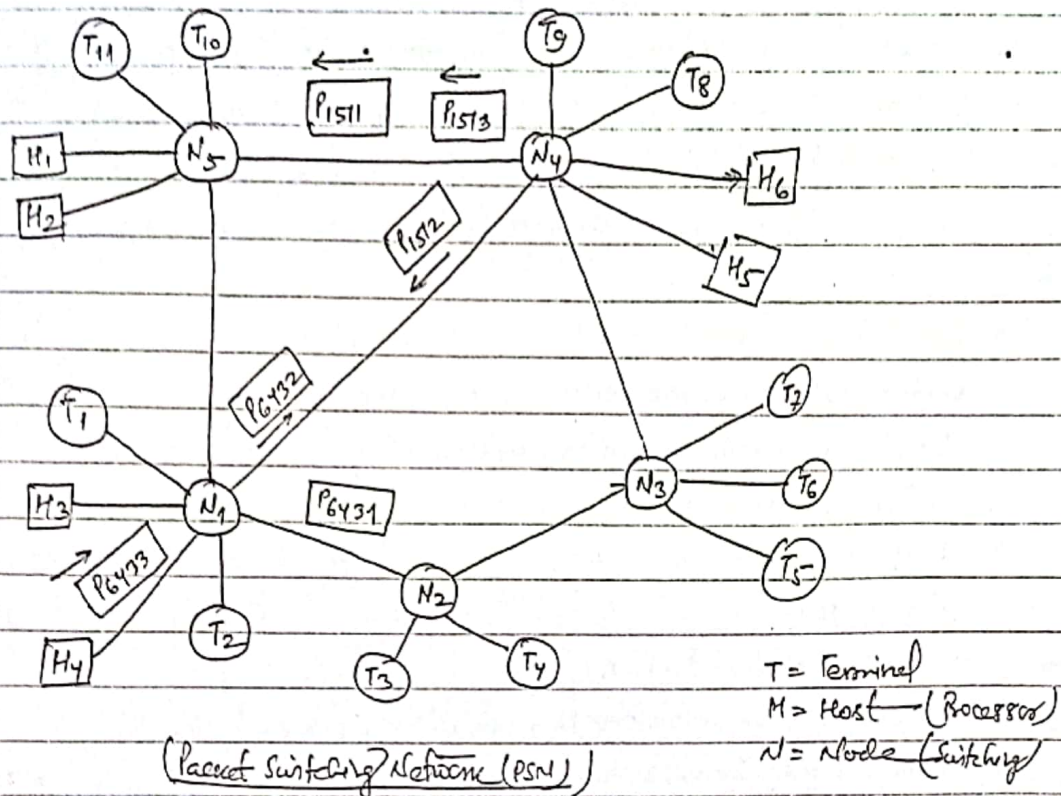 T11
T10
T9
T8
P1511
P1513
H1
N5
N4
H6
H2
P1512
H5
P6432
T1
T7
H3
N1
P6431
N3
T6
P6433
N2
T5
T2
H4
T3
T4
T = Terminel
M = Host (Processor)
N = Node (Switching)
(Packet Switching Network (PSN))